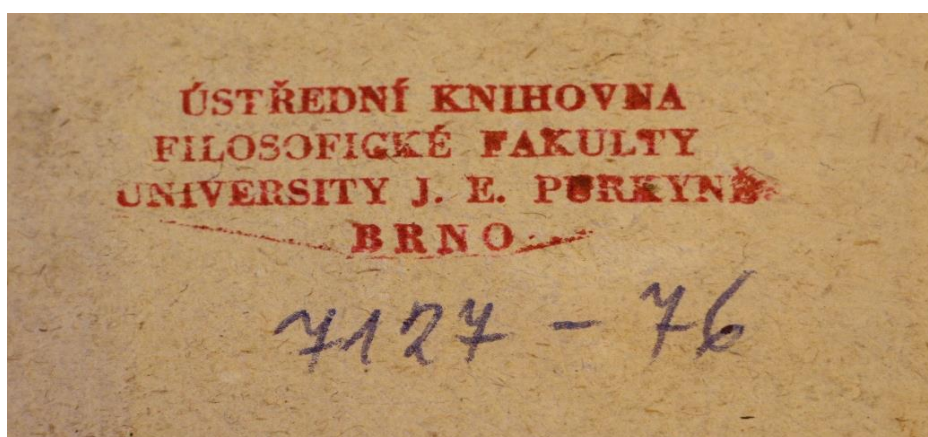 ÚSTŘEDNÍ KNIHOVNA
FILOSOFICKÉ FAKULTY
UNIVERSITY J. E. PURKYNĚ
BRNO
7127 - 76